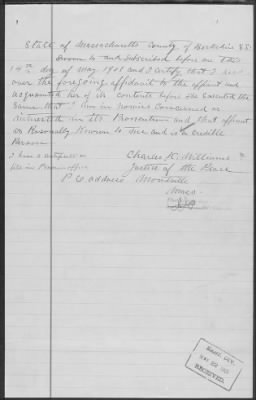 State of Massachusetts County of Berkshire S.S.
Sworn to and subscribed before me this
14th day of May 1901 and I certify that I read
over the foregoing affidavit to the affiant and
acquainted her of its contents before she executed the
same that I am in nowise concerned or
interested in its Prosecution and that affiant
is Personally Known to me and is a credible
Person
I have a certificate on
file in Pension office
Charles K. Williams
Justice of the Peace
P O address Montville
Mass.
MAY 22
RECEIVED